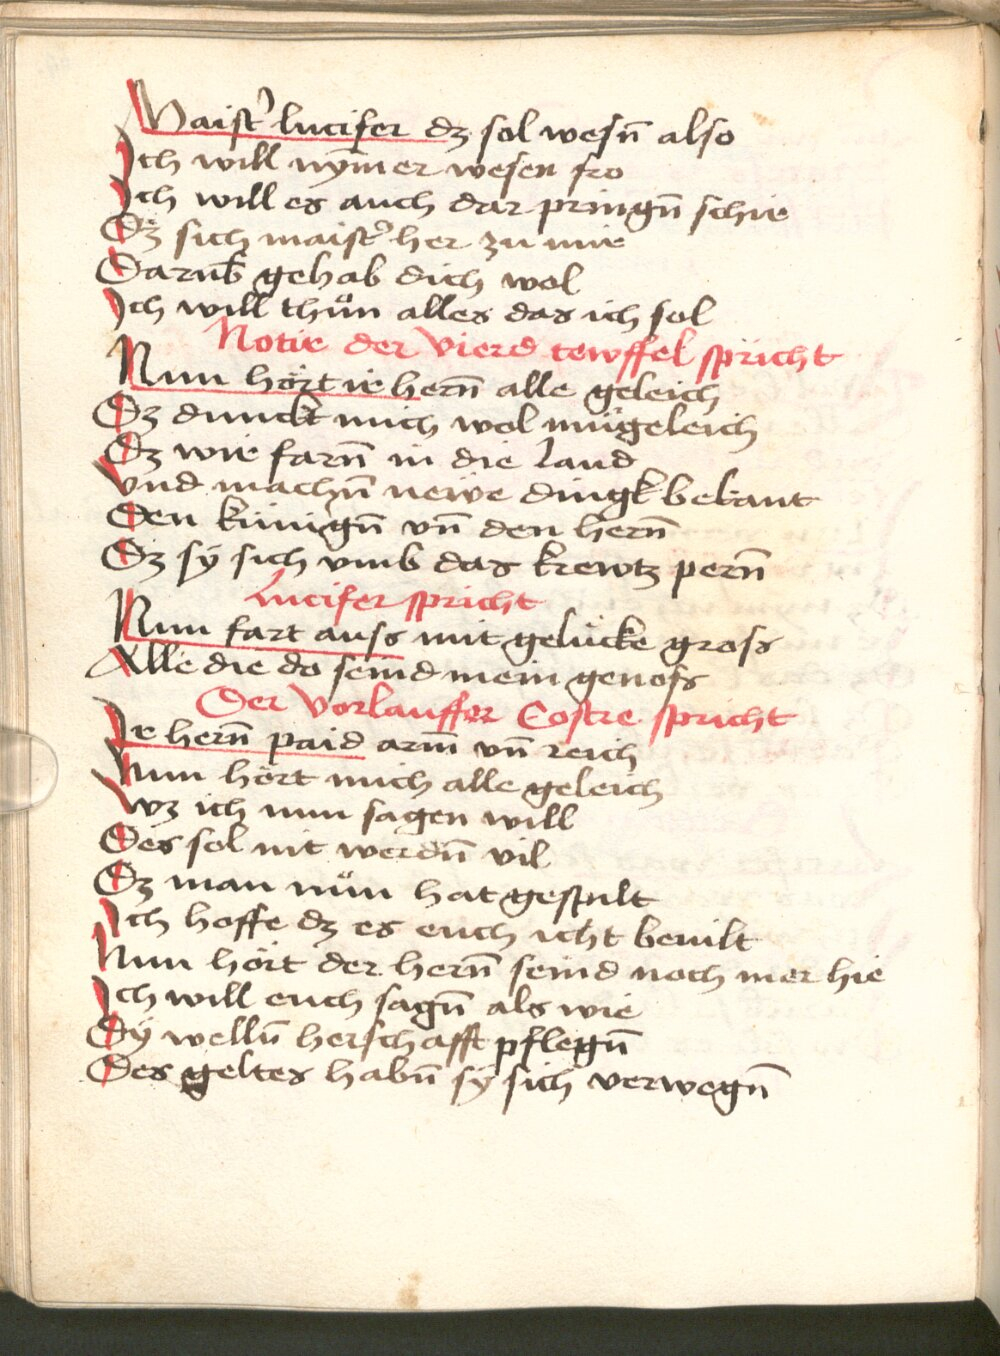 Maist͛ lucifer dz sol wesn̄ also
Ich will nym̄er wesen fro
Ich will es auch dar pringn̄ schie
Dz sich maist͛ her zu mie
Darūb gehab dich wol
Ich will thůn alles das ich sol
Notir der vierd tewffel spricht
Nun hört ir hern̄ alle geleich
Dz dunckt mich wol mügeleich
Dz wir farn̄ in die land
Vnd machn̄ newe dingk bekant
Den künign̄ vn̄ den hern̄
Dz sÿ sich vmb das krewtz pern̄
Lucifer spricht
Nun fart auss mit gelücke gross
Alle die do seind mein genoss
Der vorlauffer Costre spricht
Ir hern̄ paid arm̄ vn̄ reich
Nun hört mich alle geleich
Wz ich nun sagen will
Des sol nit werdn̄ vil
Dz man nůn hat gespilt
Ich hoffe dz es euch icht beuilt
Nun hört der hern̄ seind noch mer hie
Ich will euch sagn̄ als wie
Sÿ welln̄ herschafft pflegn̄
Des geltes habn̄ sÿ sich verwegn̄